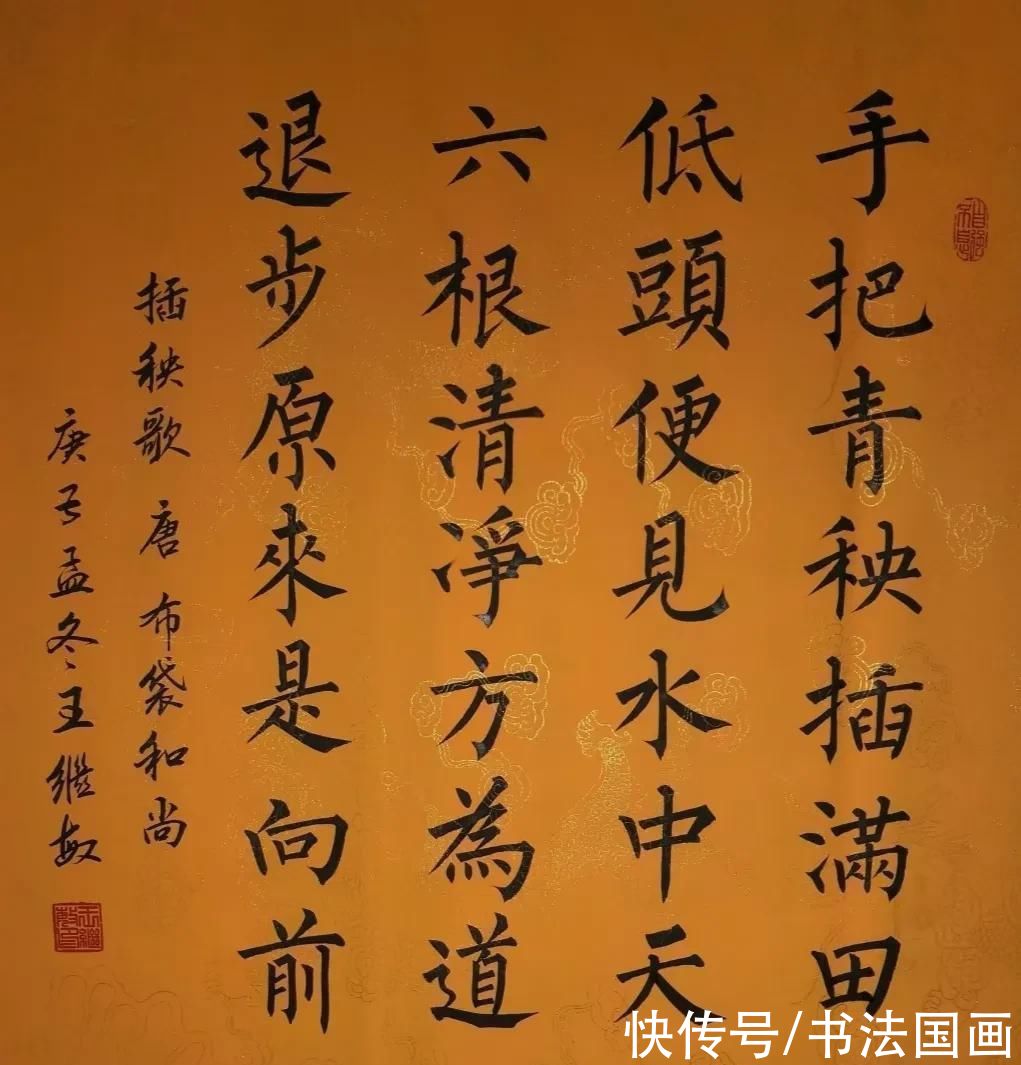 手把青秧插滿田
低頭便見水中天
六根清淨方為道
退步原來是向前
插秧歌 唐 布袋和尚
庚子孟冬王繼敏
自強不息
王繼敏印
快传号/书法国画